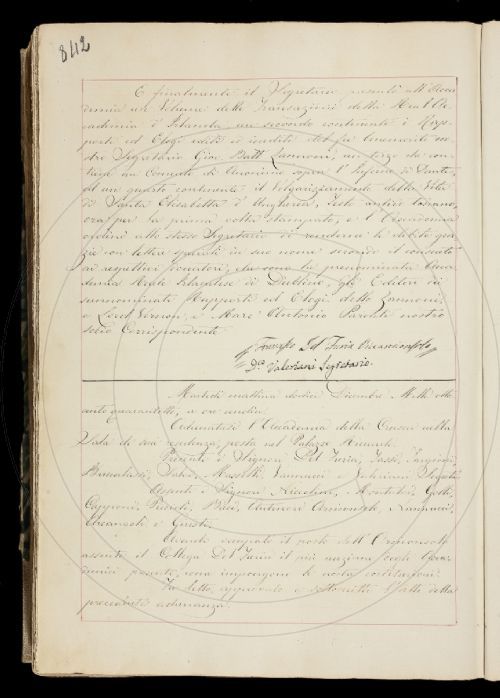 842
E finalmente il Segretario presentò all'Acca-
demia un Volume delle Transazioni della Reale Ac-
cademia d'Irlanda, un secondo contenente i Rap-
porti ed Elogi editi e inediti del fu benemerito no-
stro Segretario Gio: Batt: Zannoni, un terzo che con-
tiene un Comento di Anonimo sopra l'Inferno di Dante,
ed un quarto contenente il Volgarizzamento della Vita
di Santa Elisabetta d'Ungheria, Testo antico toscano,
ora per la prima volta stampato, e l'Arciconsolo
ordinò allo stesso Segretario di renderne le debite gra-
zie con lettere speciali in suo nome secondo il consueto
ai respettivi donatori, che sono la prenominata Acca-
demia Reale Irlandese di Dublino, gli Editori dei
summenominati Rapporti ed Elogi dello Zannoni,
e Lord Vernon, e Marc'Antonio Parenti nostro
socio Corrispondente.
Francesco Del Furia Arciconsolo
D.co Valeriani Segretario.
Martedì mattina dodici Dicembre Mille otto-
cento quarantotto, a ore undici.
Adunatasi l'Accademia della Crusca nella
Sala di sua residenza, posta nel Palazzo Riccardi.
Presenti i Signori Del Furia,
Vannucci e Valeriani Segret.
Assenti i Signori
Capponi, Niccolini,
Arcangeli e Giusti.
Avendo occupato il posto dell'Arciconsolo
assente il Collega Del Furia il più anziano degli Acca-
demici presenti, come impongono le nostre costituzioni.
Fu letto, approvato e sottoscritto l'atto della
precedente adunanza.